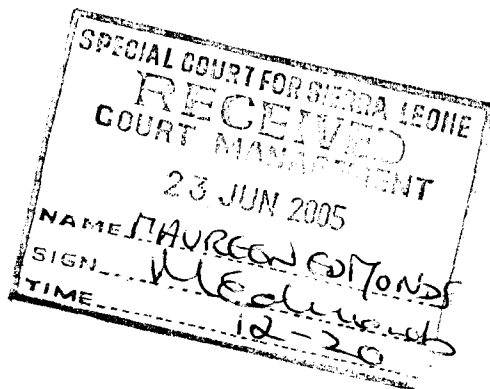 SPECIAL COURT FOR SIERRA LEONE
RECEIVED
COURT MANAGEMENT
23 JUN 2005
NAME MAUREEN EDMONDS
SIGN MEdmonds
TIME 12-20